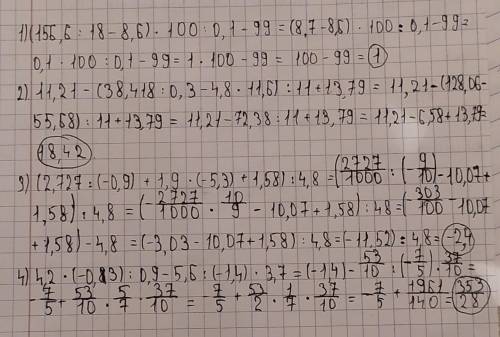 1) (156,6 : 18 - 8,6) · 100 : 0,1 - 99 = (8,7 - 8,6) · 100 : 0,1 - 99 =
0,1 · 100 : 0,1 - 99 = 1 · 100 - 99 = 100 - 99 = 1
2) 11,21 - (38,418 : 0,3 - 4,8 · 11,6) : 11 + 13,79 = 11,21 - (128,06 -
55,68) : 11 + 13,79 = 11,21 - 72,38 : 11 + 13,79 = 11,21 - 6,58 + 13,79 =
18,42
3) (2,727 : (-0,9) + 1,9 · (-5,3) + 1,58) : 4,8 = (2727/1000 : (-9/10) - 10,07 +
1,58) : 4,8 = (-2727/1000 · 10/9 - 10,07 + 1,58) : 4,8 = (-303/100 - 10,07
+ 1,58) - 4,8 = (-3,03 - 10,07 + 1,58) : 4,8 = (-11,52) : 4,8 = -2,4
4) 4,2 · (-0,3) : 0,9 - 5,6 : (-1,4) · 3,7 = (-1,4) - 53/10 : (-7/5) · 37/10 =
-7/5 + 53/10 · 5/7 · 37/10 = -7/5 + 53/2 · 1/7 · 37/10 = -7/5 + 1961/140 = 353/28